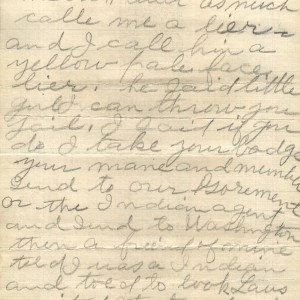 as much
calle me a lier
and I call him a
yellow pale face
lier. he said little
guld can throw you
Jail, I said if you
do I take your badge
your mane and member
send to our Gorement
or the Indian agent
and send to Washington
then a friend of mine
told I was a Indian
and told to look Laws